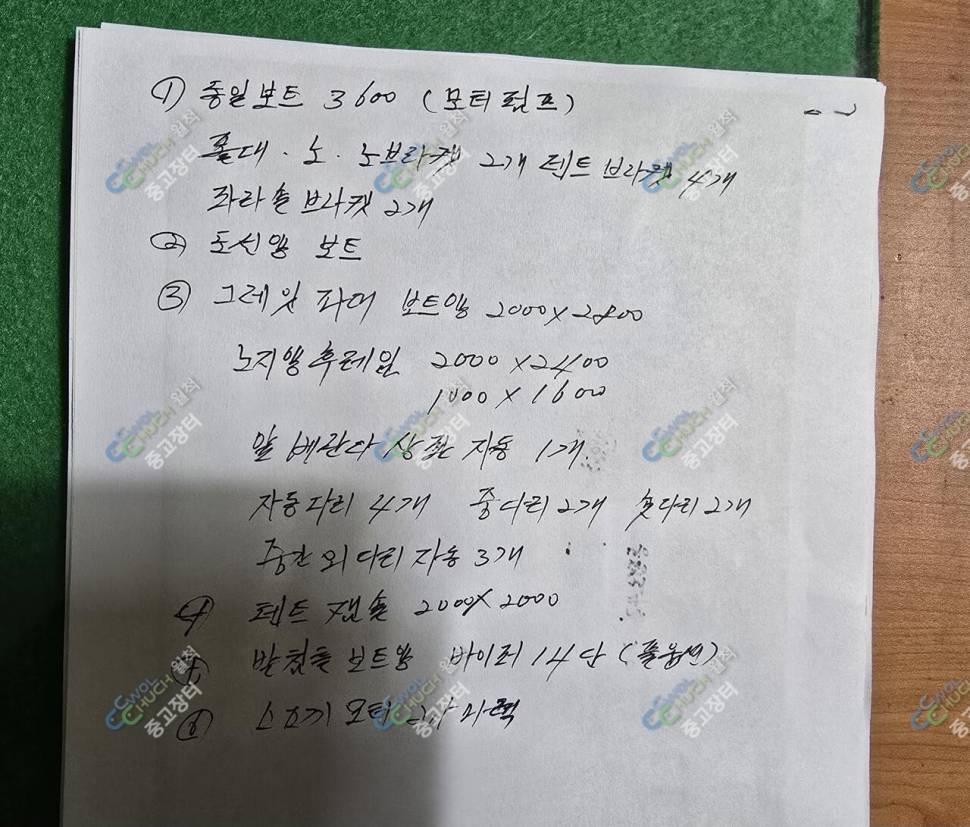 ① 종일보트 3600 (모터펌프)
폴대 · 노 · 노브라켓 2개 텐트 브라켓 4개
파라솔 브라켓 2개
② 조선용 보트
③ 그레잇 파머 보트용 2000×2800
노지용후레임 2000×2400
1000×1600
앞 베란다 상판 자동 1개
자동다리 4개 중다리 2개 숏다리 2개
중간 외다리 자동 3개
④ 텐트 캡슐 2000×2000
⑤ 받침틀 보트용 바이저 14단 (풀옵션)
⑥ 스즈끼 모터 마력
CWOL CHUCH 월척 중고장터